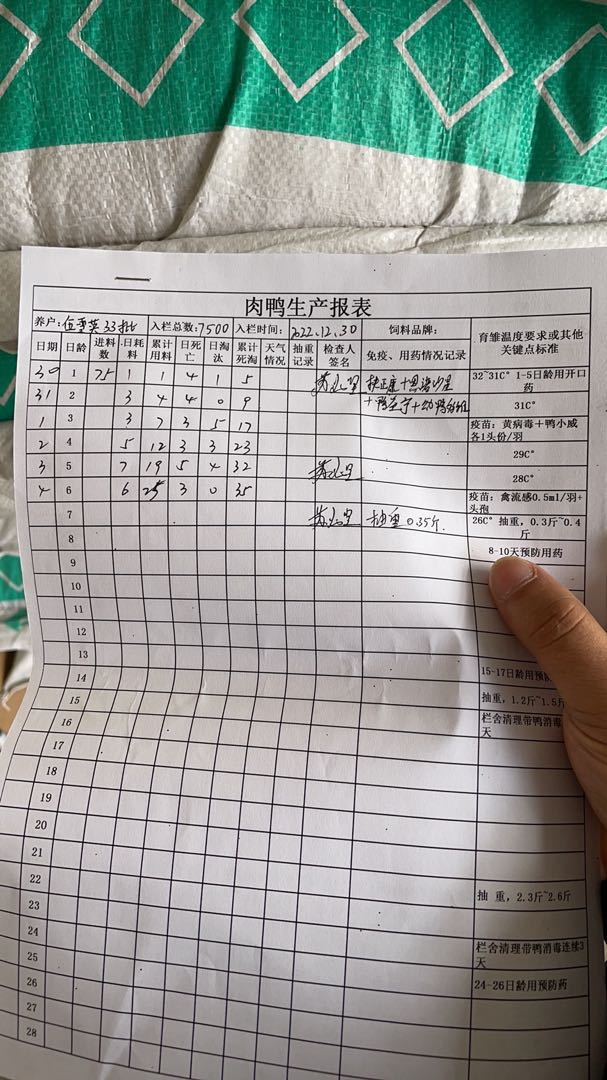 肉鸭生产报表
养户: 33批 入栏总数:7500 入栏时间: 2022.12.30 饲料品牌: 育雏温度要求或其他关键点标准
日期 日龄 进料数 日耗料 累计用料 日死亡 日淘汰 累计死淘 天气情况 抽重记录 检查人签名 免疫、用药情况记录
30 1 75 1 1 4 1 5 32~31C° 1-5日龄用开口药
31 2 3 4 4 0 9 31C°
1 3 3 7 3 5 17 疫苗: 黄病毒+鸭小威各1头份/羽
2 4 5 12 3 3 23 29C°
3 5 7 19 5 4 32 28C°
4 6 6 25 3 0 35 疫苗: 禽流感0.5ml/羽+头孢
7 抽重0.35斤. 26C° 抽重, 0.3斤~0.4斤
8 8-10天预防用药
9
10
11
12
13
14 15-17日龄用预防
15 抽重, 1.2斤~1.5斤
16 栏舍清理带鸭消毒 天
17
18
19
20
21
22
23 抽 重, 2.3斤~2.6斤
24
25 栏舍清理带鸭消毒连续3天
26 24-26日龄用预防药
27
28